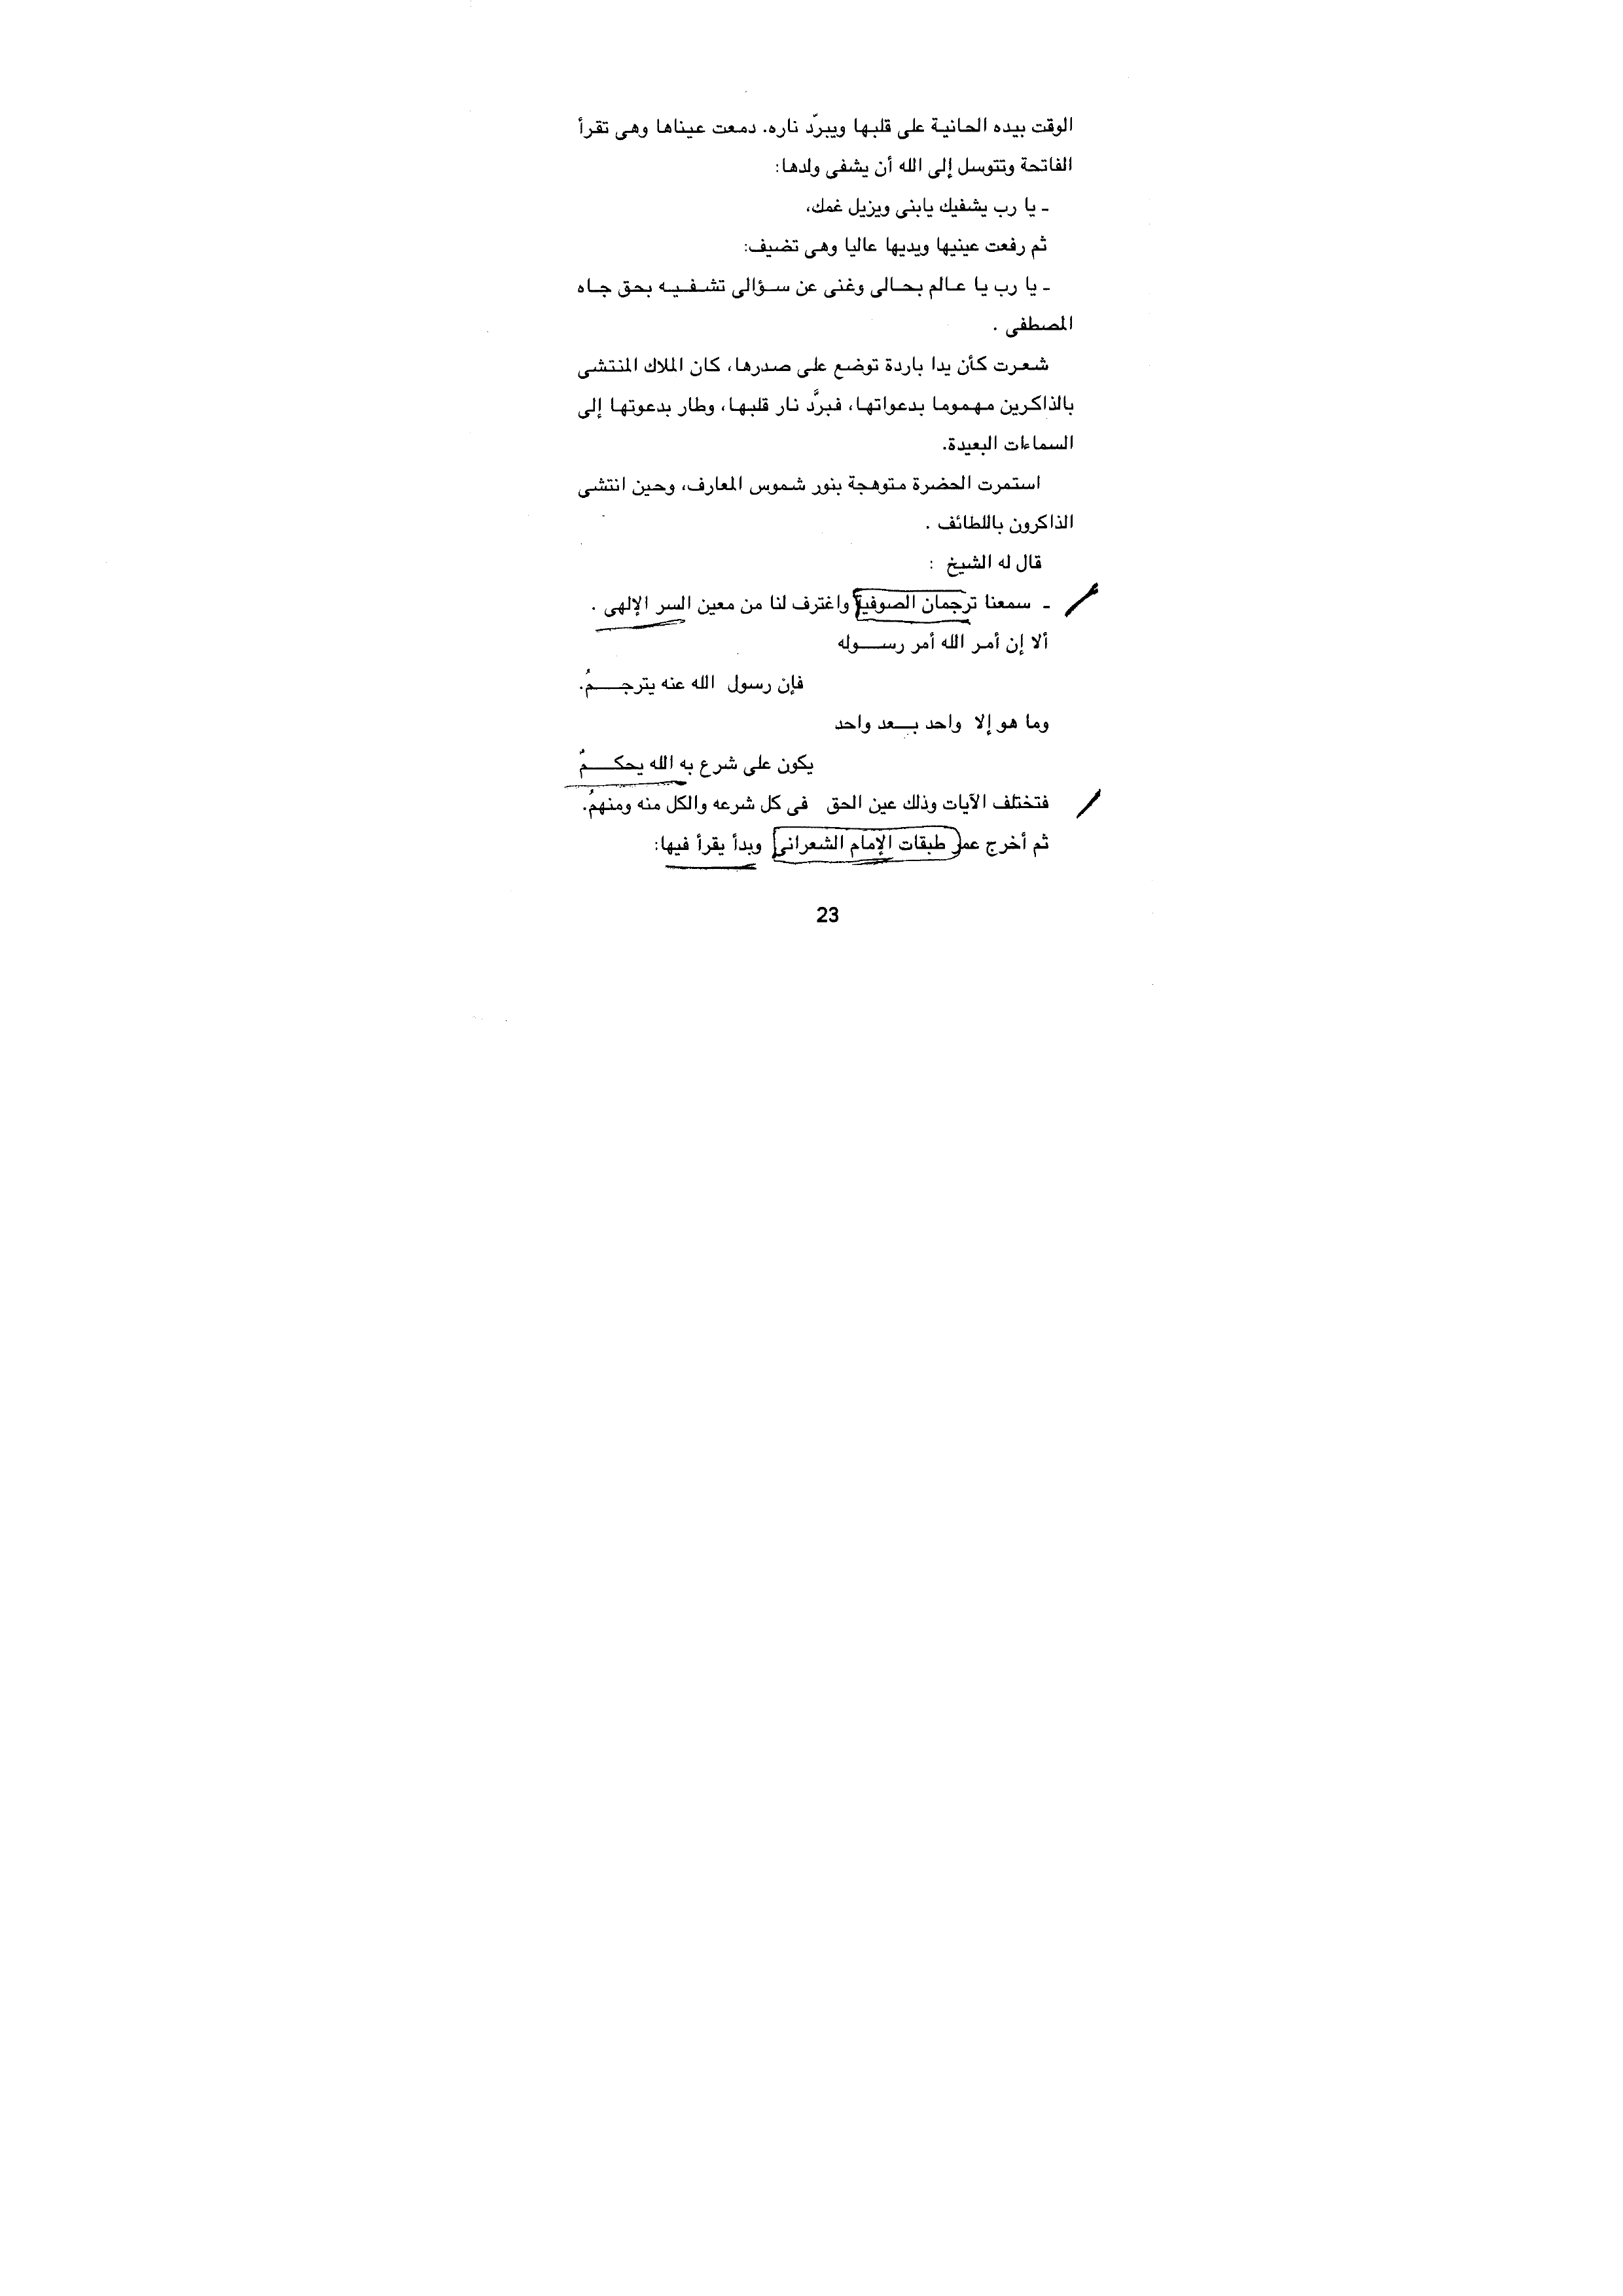 الوقت بيده الحانية على قلبها ويبرّد ناره. دمعت عيناها وهى تقرأ
الفاتحة وتتوسل إلى الله أن يشفى ولدها:
ـ يا رب يشفيك يابنى ويزيل غمك،
ثم رفعت عينيها ويديها عاليا وهى تضيف:
ـ يا رب يا عـالم بـحـالى وغنى عن سـؤالى تشـفـيـه بـحق جـاه
المصطفى .
شعرت كأن يدا باردة توضع على صدرها، كان الملاك المنتشى
بالذاكرين مهموما بدعواتها، فبرَّد نار قلبها، وطار بدعوتها إلى
السماءات البعيدة.
استمرت الحضرة متوهجة بنور شموس المعارف، وحين انتشى
الذاكرون باللطائف .
قال له الشيخ :
ـ سمعنا ترجمان الصوفية واغترف لنا من معين السر الإلهى .
ألا إن أمر الله أمر رســـوله
فإن رسول الله عنه يترجـــمُ.
وما هو إلا واحد بـــعد واحد
يكون على شرع به الله يحكـــمُ
فتختلف الآيات وذلك عين الحق فى كل شرعه والكل منه ومنهمُ.
ثم أخرج عمر طبقات الإمام الشعرانى وبدأ يقرأ فيها:
23